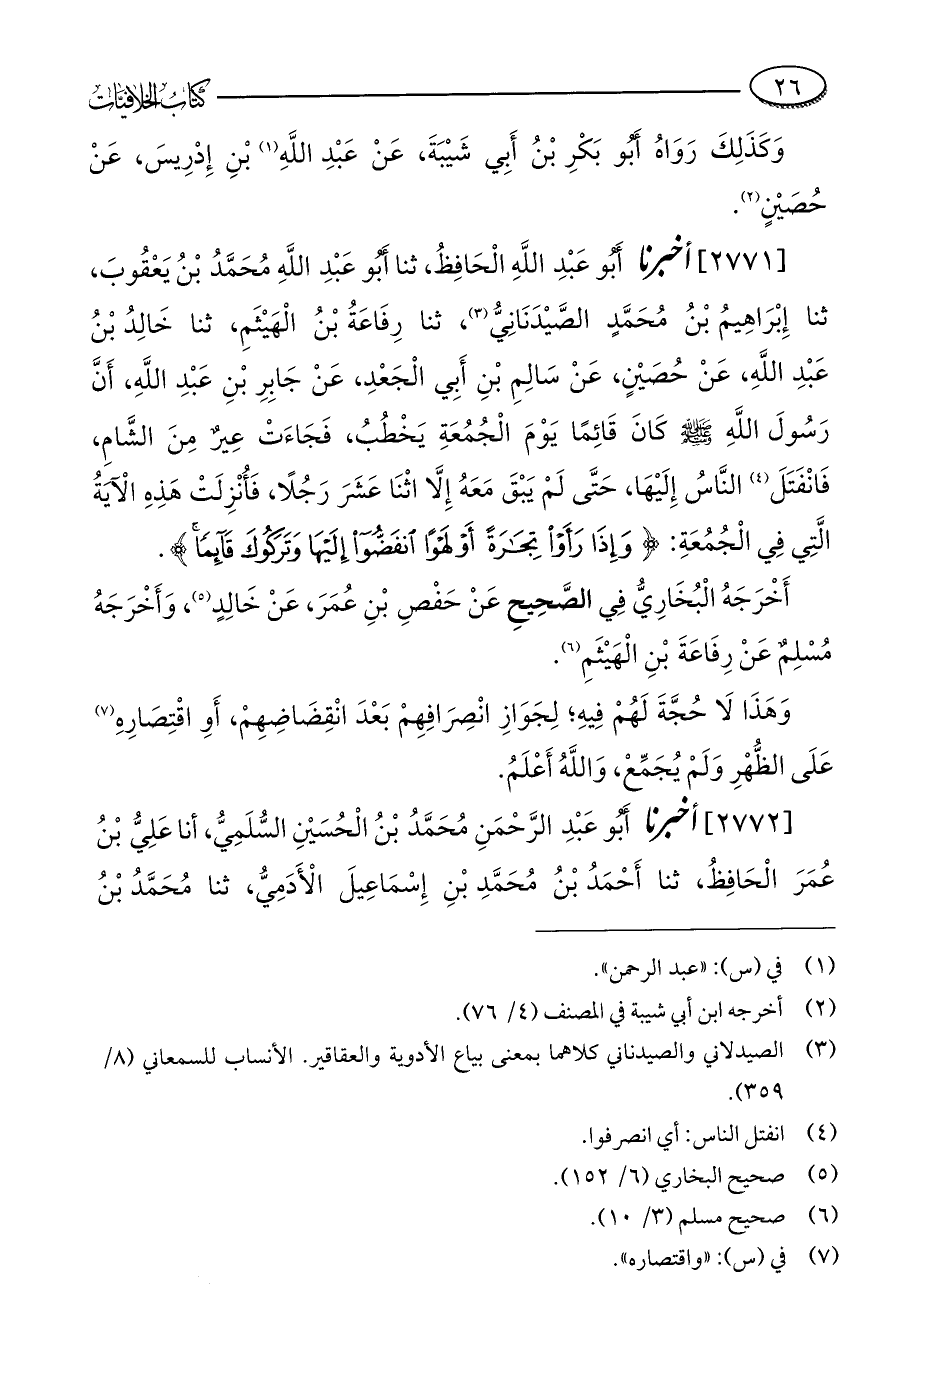 ٢٦
كتاب الخلافيات
وَكَذَلِكَ رَوَاهُ أَبُو بَكْرِ بْنُ أَبِي شَيْبَةَ، عَنْ عَبْدِ اللَّهِ(١) بْنِ إِدْرِيسَ، عَنْ
حُصَيْنٍ(٢).
[٢٧٧١] أخبرنا أَبُو عَبْدِ اللَّهِ الْحَافِظُ، ثنا أَبُو عَبْدِ اللَّهِ مُحَمَّدُ بْنُ يَعْقُوبَ،
ثنا إِبْرَاهِيمُ بْنُ مُحَمَّدٍ الصَّيْدَنَانِيُّ(٣)، ثنا رِفَاعَةُ بْنُ الْهَيْثَمِ، ثنا خَالِدُ بْنُ
عَبْدِ اللَّهِ، عَنْ حُصَيْنٍ، عَنْ سَالِمِ بْنِ أَبِي الْجَعْدِ، عَنْ جَابِرِ بْنِ عَبْدِ اللَّهِ، أَنَّ
رَسُولَ اللَّهِ ﷺ كَانَ قَائِمًا يَوْمَ الْجُمُعَةِ يَخْطُبُ، فَجَاءَتْ عِيرٌ مِنَ الشَّامِ،
فَانْفَتَلَ(٤) النَّاسُ إِلَيْهَا، حَتَّى لَمْ يَبْقَ مَعَهُ إِلَّا اثْنَا عَشَرَ رَجُلًا، فَأُنْزِلَتْ هَذِهِ الْآيَةُ
الَّتِي فِي الْجُمُعَةِ: ﴿ وَإِذَا رَأَوْا۟ تِجَٰرَةً أَوْ لَهْوًا ٱنفَضُّوٓا۟ إِلَيْهَا وَتَرَكُوكَ قَآئِمًا ۚ ﴾.
أَخْرَجَهُ الْبُخَارِيُّ فِي الصَّحِيحِ عَنْ حَفْصِ بْنِ عُمَرَ، عَنْ خَالِدٍ(٥)، وَأَخْرَجَهُ
مُسْلِمٌ عَنْ رِفَاعَةَ بْنِ الْهَيْثَمِ(٦).
وَهَذَا لَا حُجَّةَ لَهُمْ فِيهِ؛ لِجَوَازِ انْصِرَافِهِمْ بَعْدَ انْقِضَاضِهِمْ، أَوِ اقْتِصَارِهِ(٧)
عَلَى الظُّهْرِ وَلَمْ يُجَمِّعْ، وَاللَّهُ أَعْلَمُ.
[٢٧٧٢] أخبرنا أَبُو عَبْدِ الرَّحْمَنِ مُحَمَّدُ بْنُ الْحُسَيْنِ السُّلَمِيُّ، أنا عَلِيُّ بْنُ
عُمَرَ الْحَافِظُ، ثنا أَحْمَدُ بْنُ مُحَمَّدِ بْنِ إِسْمَاعِيلَ الْأَدَمِيُّ، ثنا مُحَمَّدُ بْنُ
(١) في (س): «عبد الرحمن».
(٢) أخرجه ابن أبي شيبة في المصنف (٤/ ٧٦).
(٣) الصيدلاني والصيدناني كلاهما بمعنى بياع الأدوية والعقاقير. الأنساب للسمعاني (٨/
٣٥٩).
(٤) انفتل الناس: أي انصرفوا.
(٥) صحيح البخاري (٦/ ١٥٢).
(٦) صحيح مسلم (٣/ ١٠).
(٧) في (س): «واقتصاره».